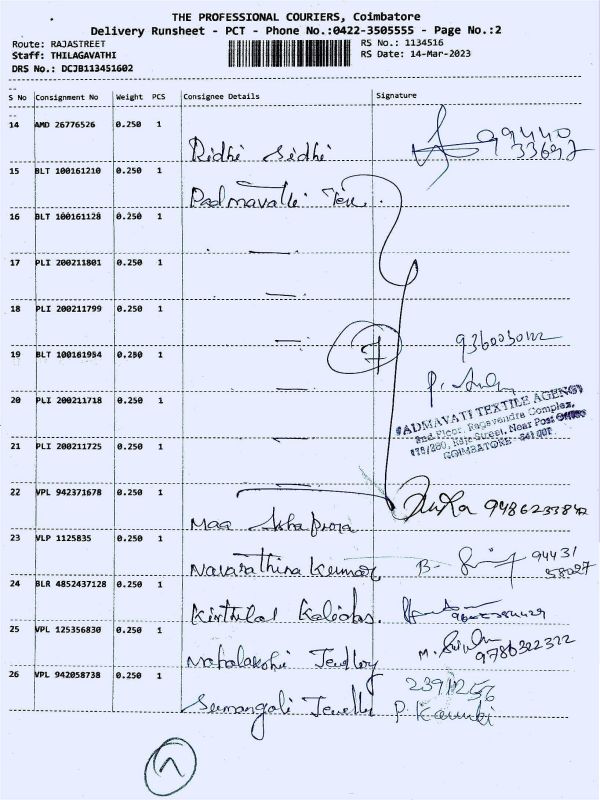 THE PROFESSIONAL COURIERS, Coimbatore
Delivery Runsheet - PCT - Phone No.:0422-3505555 - Page No.:2
Route: RAJASTREET RS No.: 1134516
Staff: THILAGAVATHI RS Date: 14-Mar-2023
DRS No.: DCJB113451602
S No Consignment No Weight PCS Consignee Details Signature
14 AMD 26776526 0.250 1
Ridhi Sidhi 99440
33697
15 BLT 100161210 0.250 1
Padmavathi Tex
16 BLT 100161128 0.250 1
17 PLI 200211801 0.250 1
18 PLI 200211799 0.250 1
7
19 BLT 100161954 0.250 1
20 PLI 200211718 0.250 1
PADMAVATI TEXTILE AGENCY
2nd Floor, Ragavendra Complex,
Raja Street, Near Post Office
COIMBATORE
21 PLI 200211725 0.250 1
22 VPL 942371678 0.250 1
Maa
23 VLP 1125835 0.250 1
Navarathna Kumar B- 94431
58027
24 BLR 4852437128 0.250 1
25 VPL 125356830 0.250 1
Mahalakshi Jewllery M. 9786322322
26 VPL 942058738 0.250 1
Sumangali P.